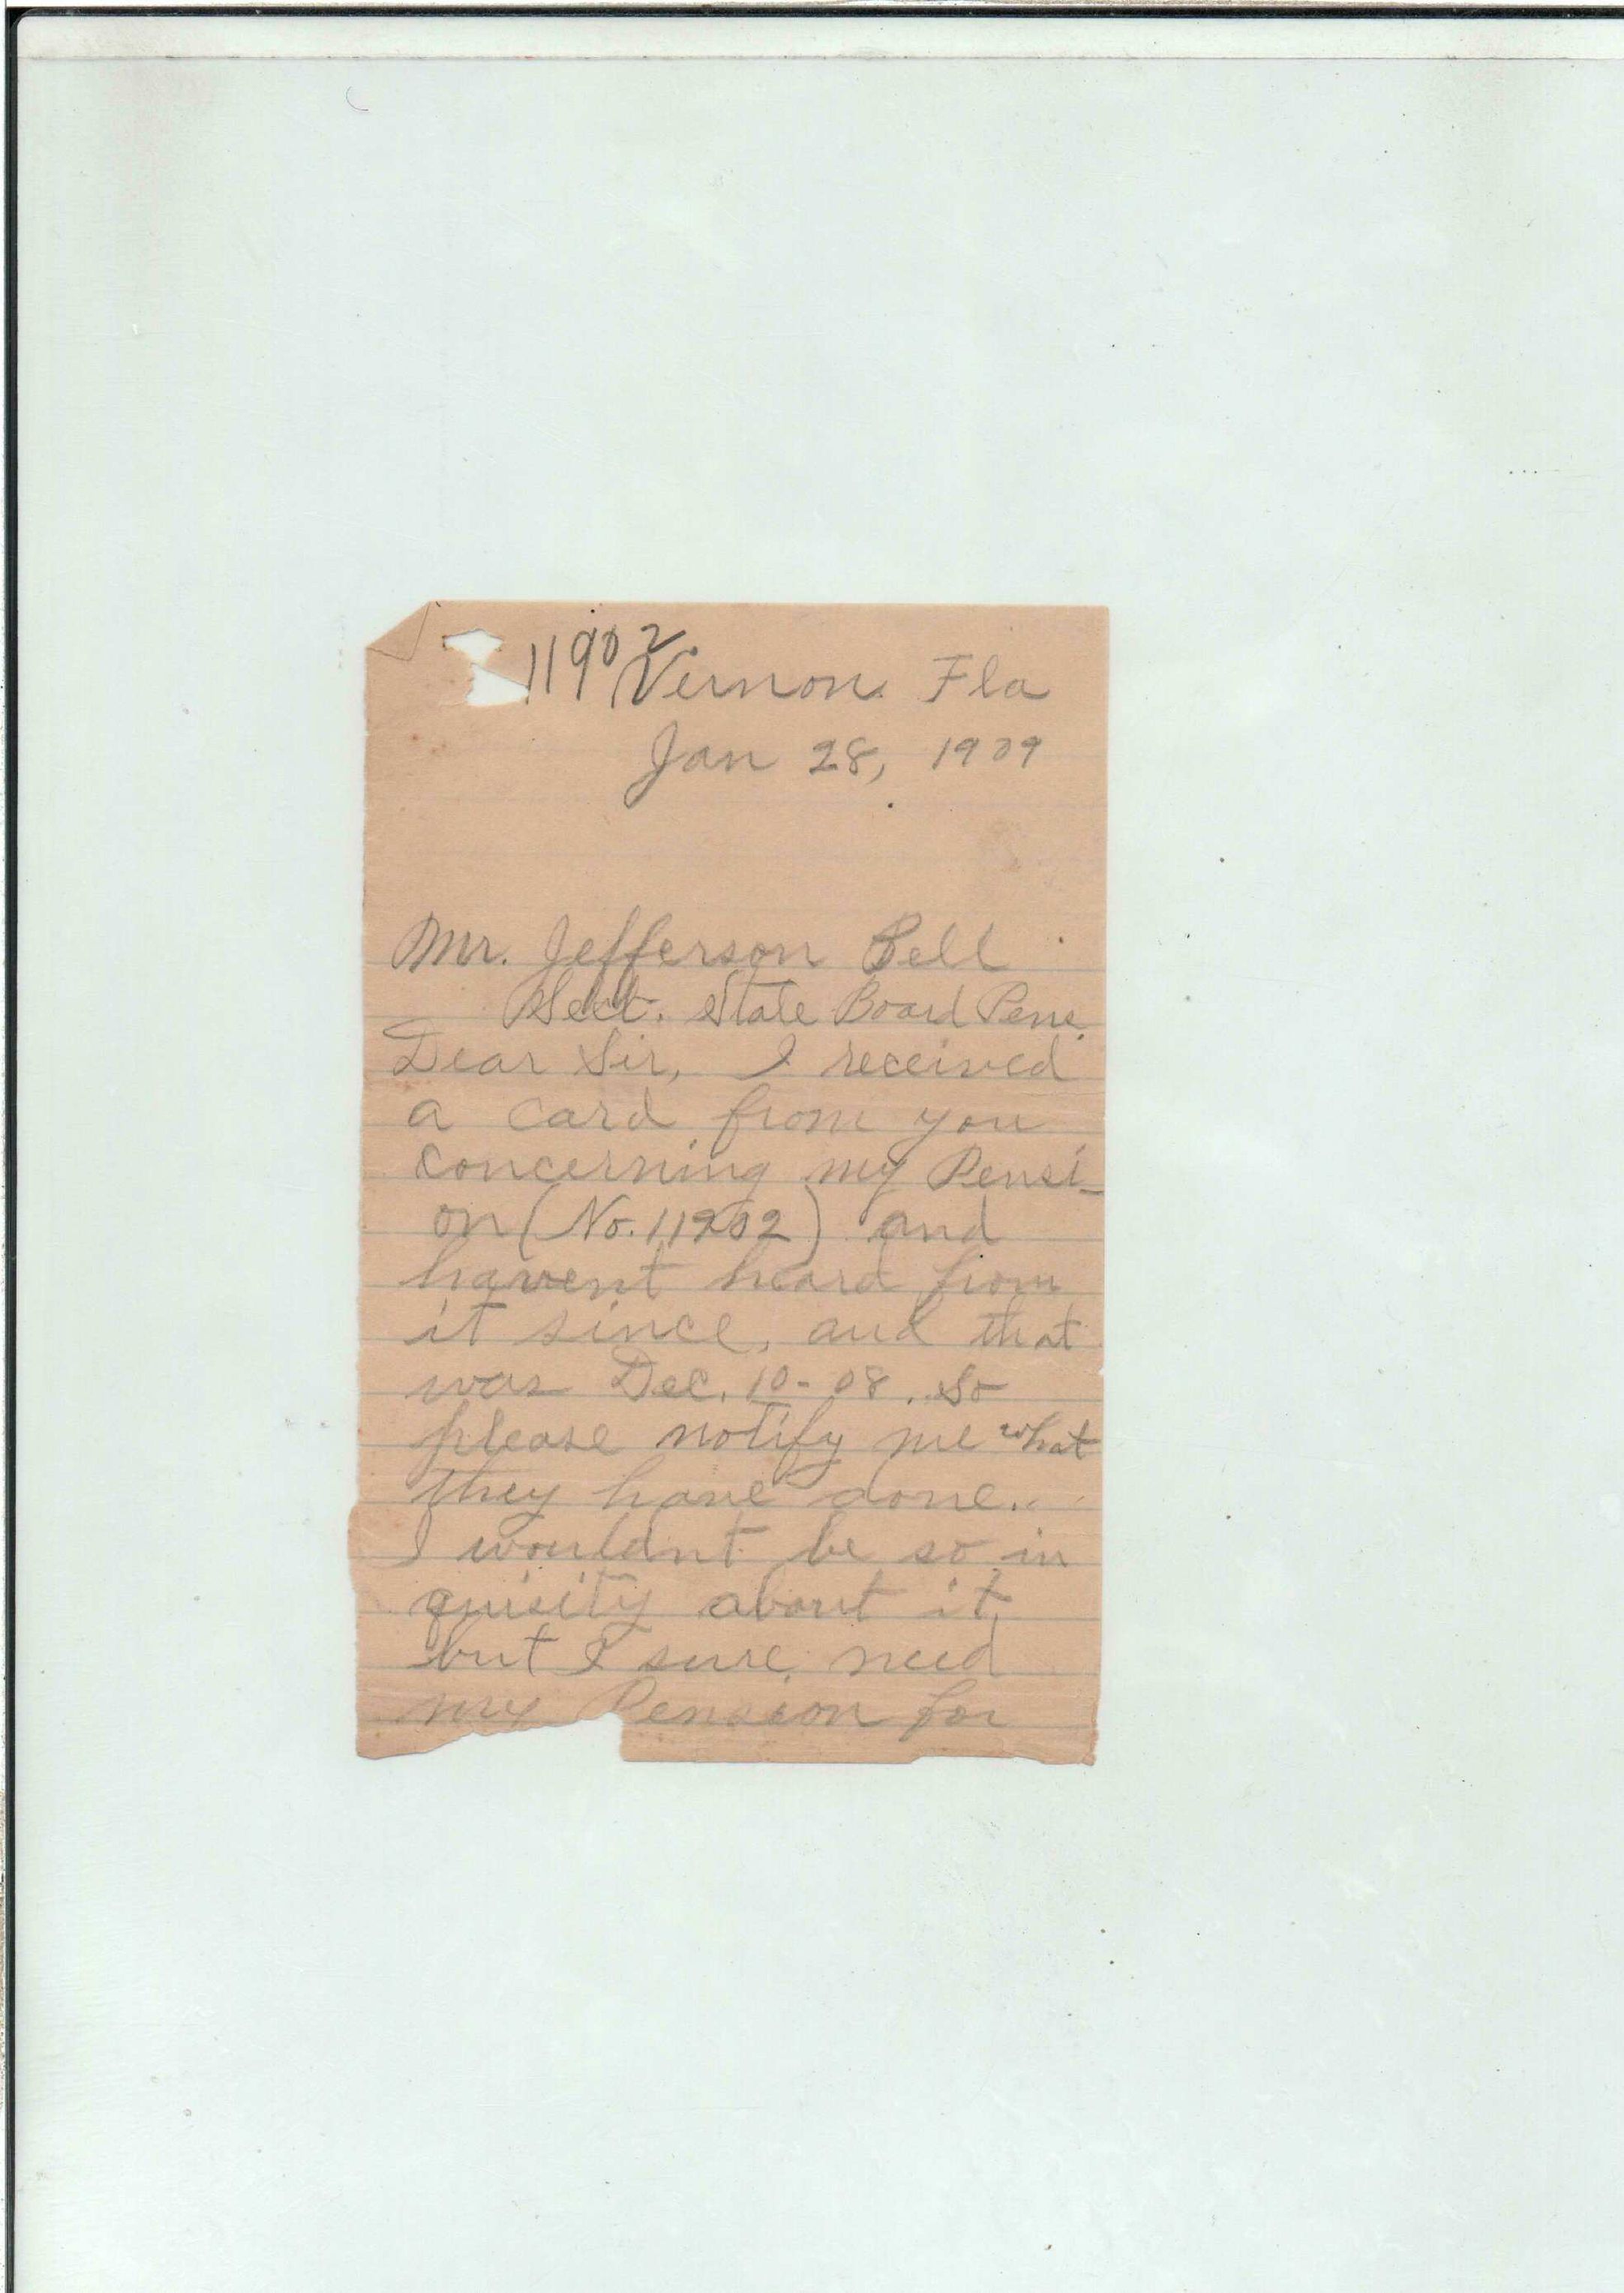 11902
Vernon. Fla
Jan 28, 1909
Mr. Jefferson Bell
Sect. State Board Pens.
Dear Sir, I received
a card from you
concerning my Pensi-
on (No. 11902) and
havent heard from
it since, and that
was Dec. 10 - 08. So
please notify me what
they have done.
I wouldnt be so in
quisity about it,
but I sure need
my Pension for